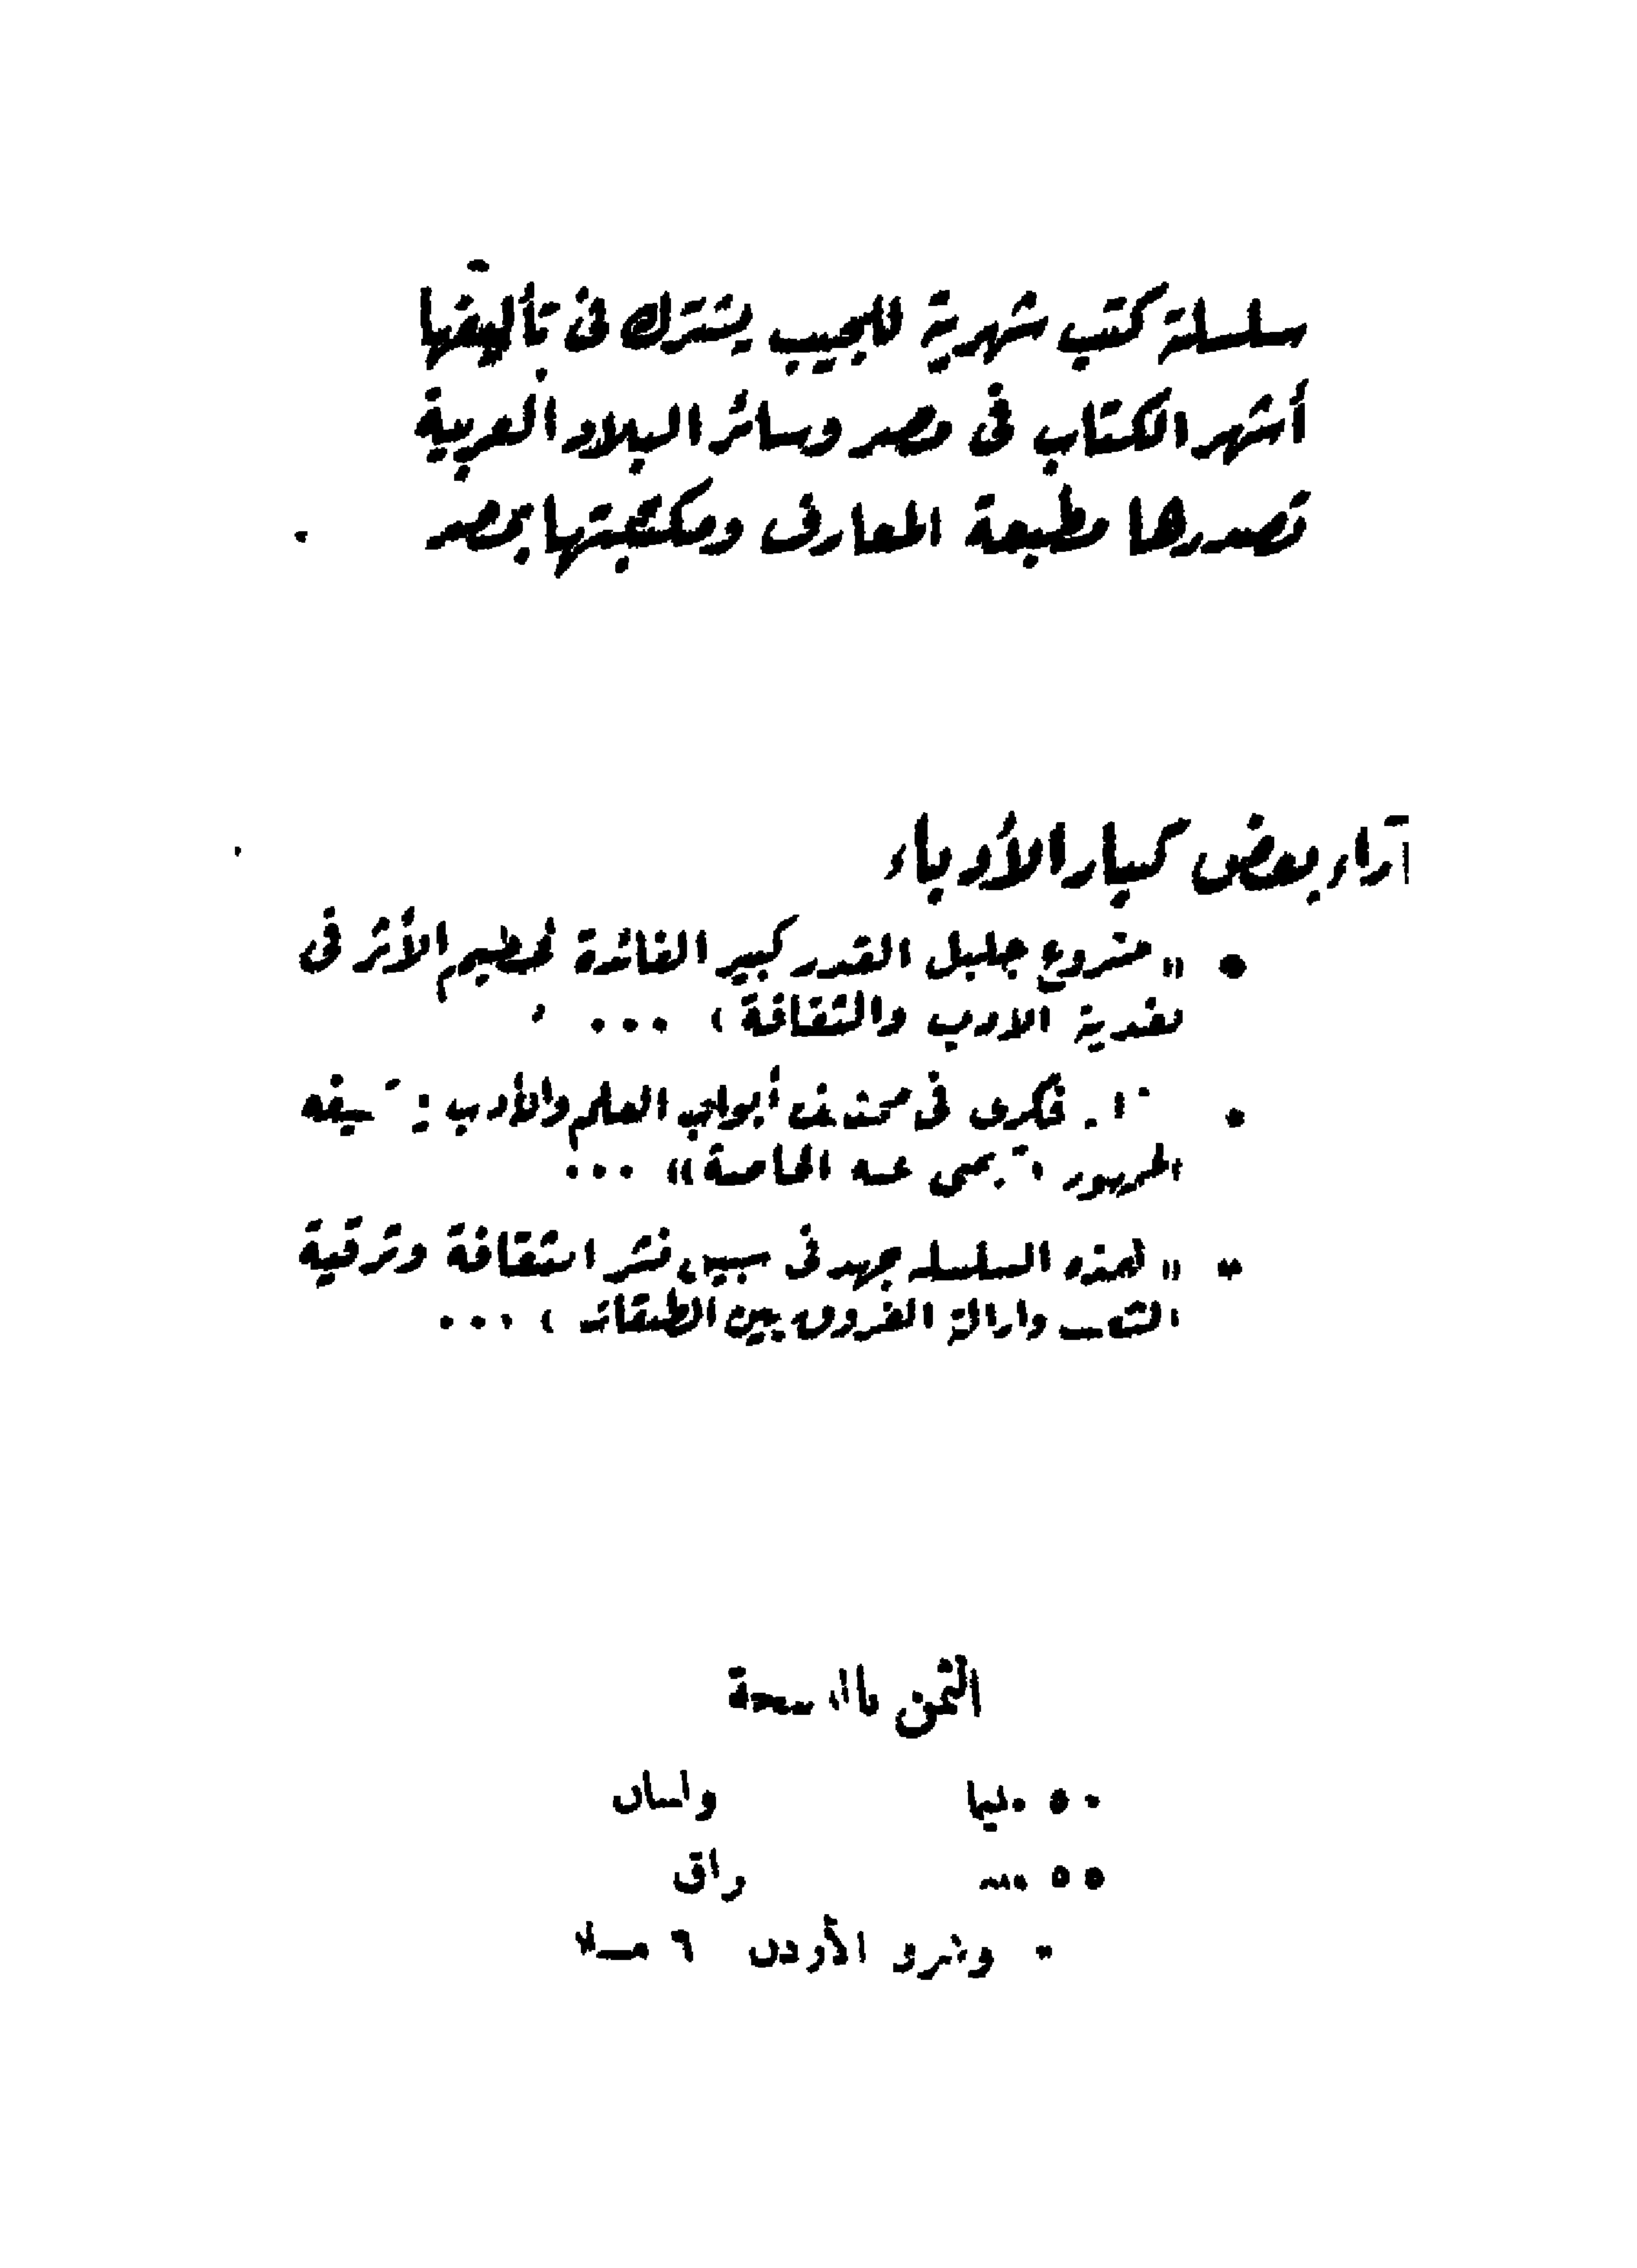 سلسلة كتب شهرية للجيب يشترك فى تأليفها
أشهر الكتاب فى مصر وسائر البلاد العربية
تصدرها مطبعة المعارف ومكتبتها بمصر
آراء بعض كبار الأدباء
• « مشروع جليل القدر كبير الفائدة عظيم الأثر فى
تغذية الأدب والثقافة » ...
• فكرى فى مختلف أبواب العلم والأدب
عنه الخاصة » ...
• « لهذه السلسلة جهد فى سبيل نشر الثقافة وترقية
الشعب وازالة الفروق بين الطبقات » ...
الثمن
٥٠ مليما
٥٥
الأردن ٦